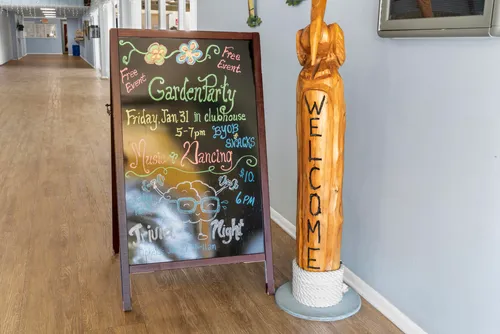 Free
Event
Free
Event
Garden Party
Friday, Jan 31 in clubhouse
5-7pm
BYOB
SNACKS
Music & Dancing
$10
6PM
Trivia Night
WELCOME